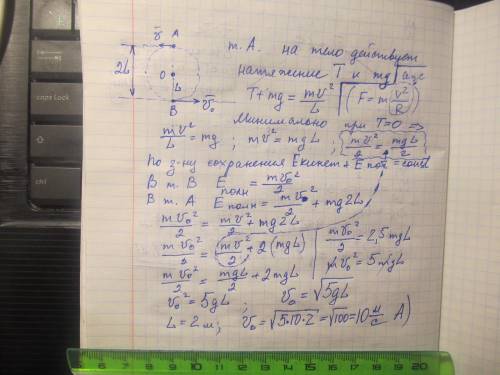 v̄ A
т. А. на тело действует
натяжение T и mg a ц.с
T+mg = mv²/L (F = m v²/R)
2L O L
B v̄₀
Минимально при T=0 ⇒
mv²/L = mg ; mv² = mgL ; mv²/2 = mgL/2
По з-ну сохранения Eкинет + E пот = const
В т. В E полн = mv₀²/2
В т. А E полн = mv²/2 + mg2L
mv₀²/2 = mv²/2 + mg2L
mv₀²/2 = mv²/2 + 2(mgL)
mv₀²/2 = mgL/2 + 2mgL
mv₀²/2 = 2,5mgL
mv₀² = 5mgL
v₀² = 5gL ; v₀ = √5gL
L = 2м; v₀ = √5·10·2 = √100 = 10 м/с А)
caps lock
Shift
Ctrl
6 7 8 9 10 11 12 13 14 15 16 17 18 19 20